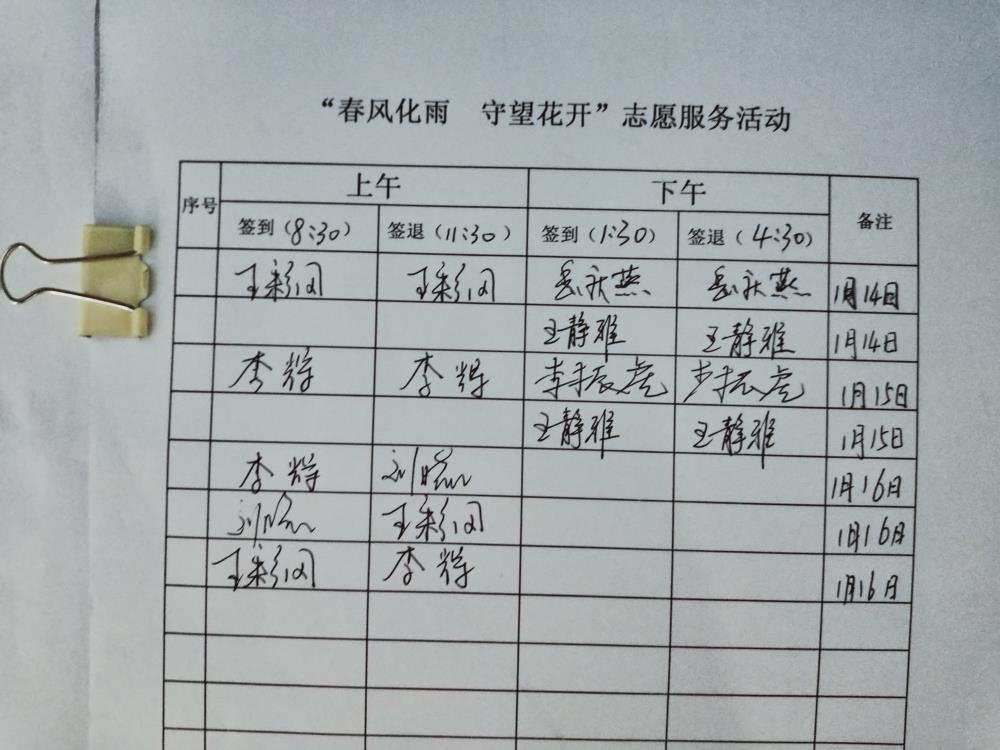 “春风化雨 守望花开”志愿服务活动
序号 上午 下午 备注
签到(8:30) 签退(11:30) 签到(1:30) 签退(4:30)
王彩闪 王彩闪 岳秋燕 岳秋燕 1月14日
王静雅 王静雅 1月14日
李辉 李辉 李振虎 李振虎 1月15日
王静雅 王静雅 1月15日
李辉 刘晓 1月16日
刘晓 王彩闪 1月16日
王彩闪 李辉 1月16日